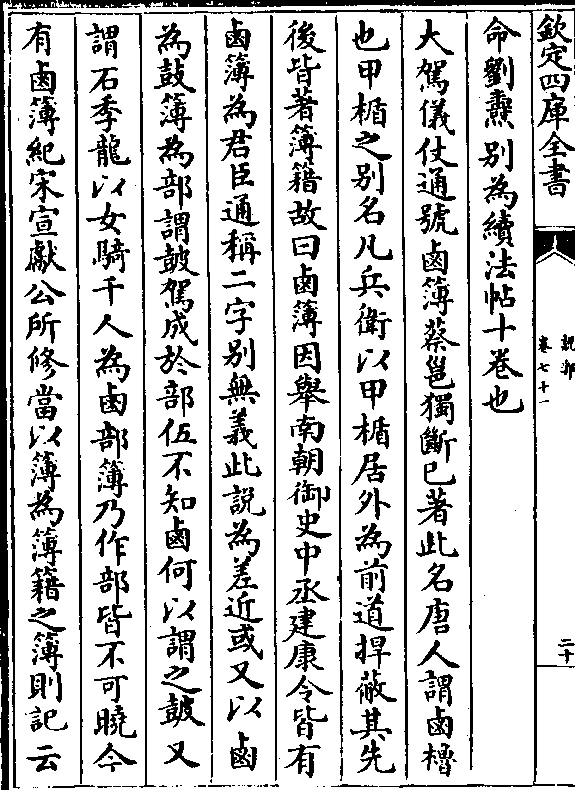 欽定四庫全書
說郛
卷七十一
二十
命劉燾別為續法帖十卷也
大駕儀仗通號鹵簿蔡邕獨斷已著此名唐人謂鹵櫓
也甲楯之别名凡兵衛以甲楯居外為前道捍蔽其先
後皆著簿籍故曰鹵簿因舉南朝御史中丞建康令皆有
鹵簿為君臣通稱二字别無義此說為差近或又以鹵
為鼓簿為部謂皷駕成於部伍不知鹵何以謂之皷又
謂石季龍以女騎千人為鹵部簿乃作部皆不可曉今
有鹵簿紀宋宣獻公所修當以簿為簿籍之簿則記云